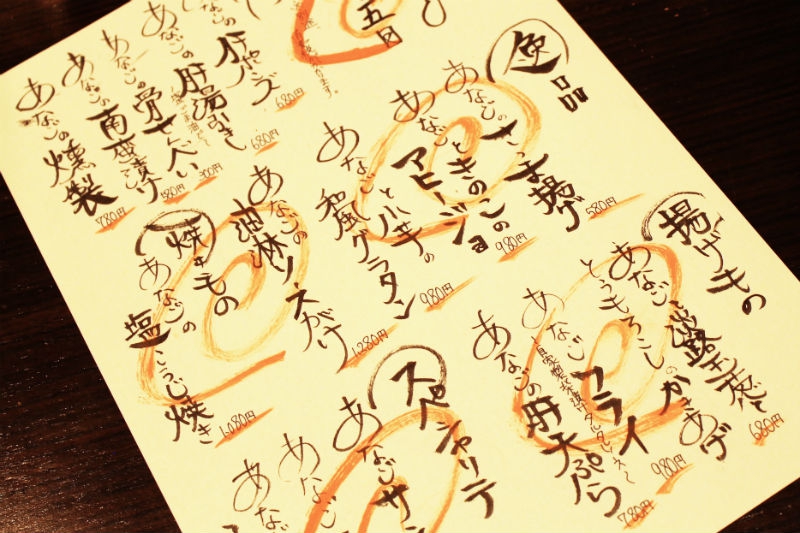 逸品
あなごのさつま揚げ 580円
あなごときのこのアヒージョ 980円
あなごと小芋の和風グラタン 980円
あなごの油淋ソースがけ 1,280円
焼きもの
あなごの塩こうじ焼き 1,080円
五日
あなごの肝ポンズ 680円
あなごの肝湯引き 680円
あなごの骨せんべい 300円
あなごの南蛮漬け 580円
あなごの燻製 780円
揚げもの
あなごと淡路玉ねぎと
とうもろこしのかきあげ 680円
あなごフライ 980円
タルタルソース
あなごの肝天ぷら 780円
スペシャリテ
あなごサン
あなご
あな